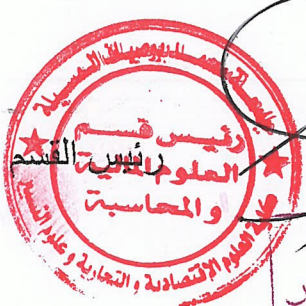 جامعة محمد بوضياف المسيلة
رئيس قسم
العلوم المالية
والمحاسبة
رئيس القسم
كلية العلوم الاقتصادية والتجارية وعلوم التسيير